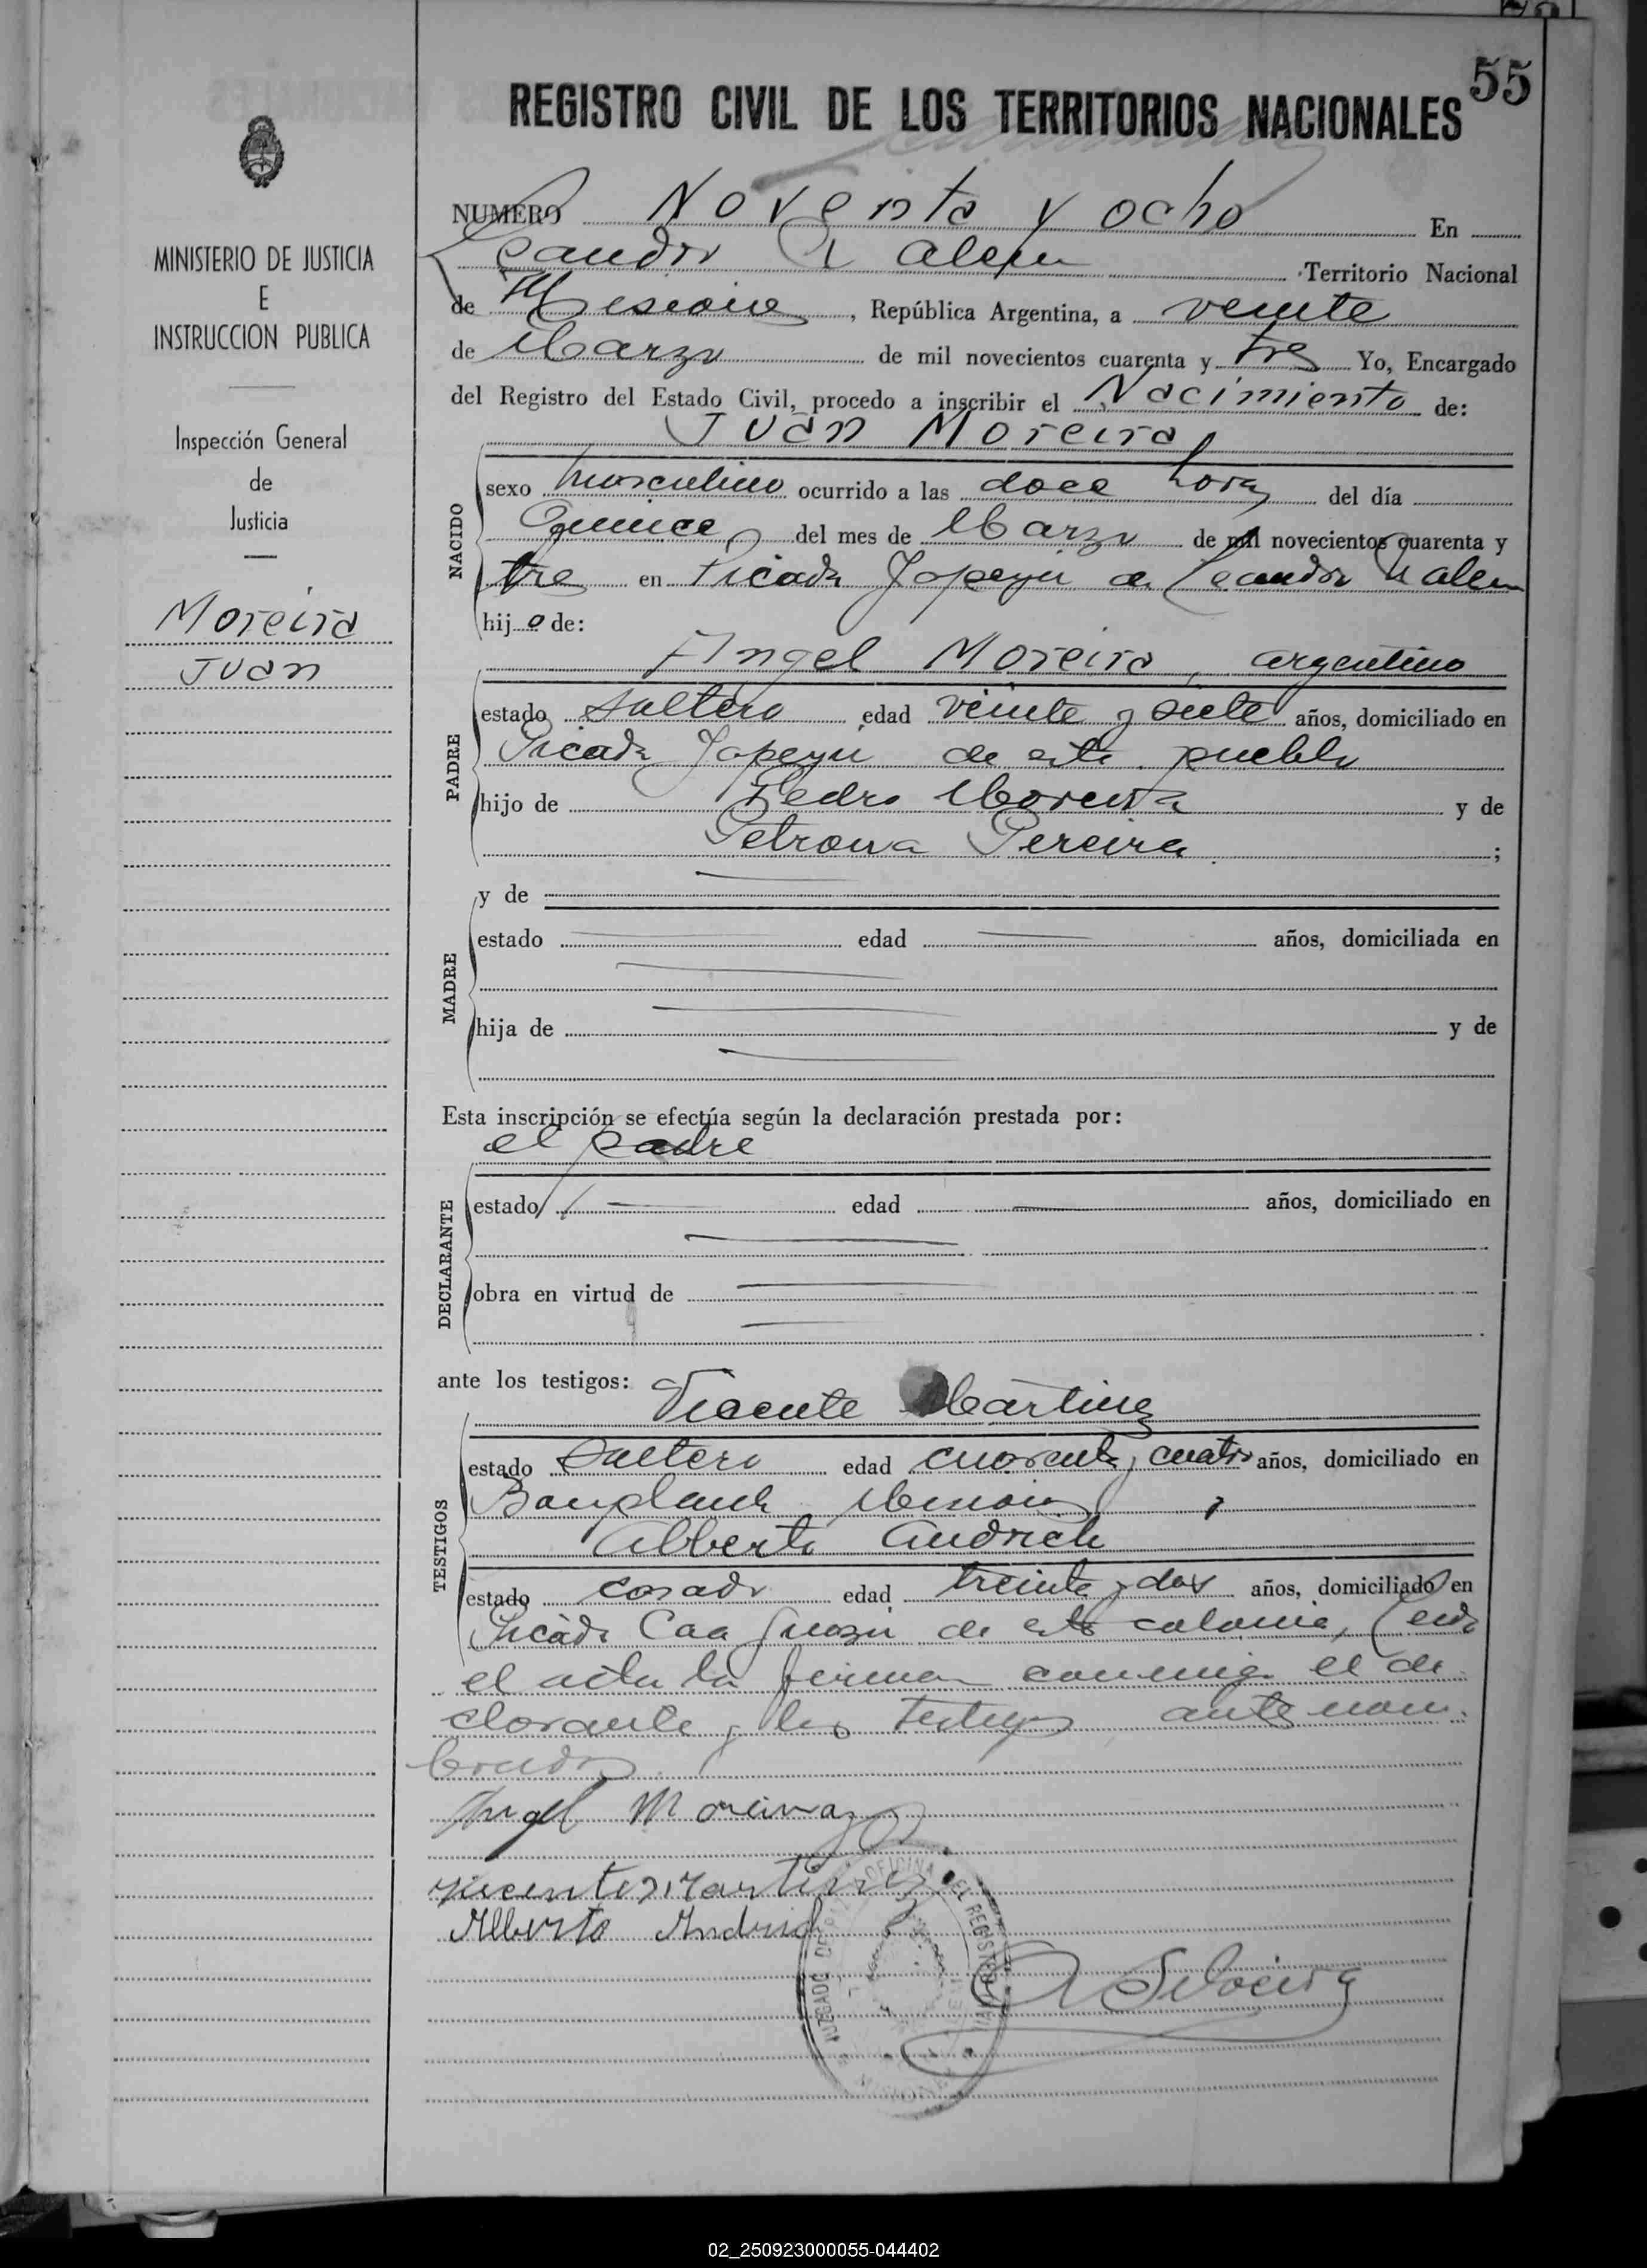 55
REGISTRO CIVIL DE LOS TERRITORIOS NACIONALES
MINISTERIO DE JUSTICIA
E
INSTRUCCION PUBLICA
Inspección General
de
Justicia
Moreira
Juan
NUMERO Noventa y ocho En
Leandro N alem Territorio Nacional
de Misiones, República Argentina, a veinte
de Marzo de mil novecientos cuarenta y tres Yo, Encargado
del Registro del Estado Civil, procedo a inscribir el Nacimiento de:
Juan Moreira
NACIDO
sexo masculino ocurrido a las doce horas del día
Quince del mes de Marzo de mil novecientos cuarenta y
tres en Picada Yapeyu de Leandro N alem
hijo de:
PADRE
Angel Moreira, argentino
estado soltero edad veinte y siete años, domiciliado en
Picada Yapeyu de este pueblo
hijo de Pedro Moreira y de
Petrona Pereira ;
MADRE
y de
estado edad años, domiciliada en
hija de y de
Esta inscripción se efectúa según la declaración prestada por:
el padre
DECLARANTE
estado edad años, domiciliado en
obra en virtud de
ante los testigos: Vicente Martinez
TESTIGOS
estado Soltero edad cuarenta y cuatro años, domiciliado en
Bonpland Misiones,
Alberto Andrich
estado casado edad treinta y dos años, domiciliado en
Picada Caa Guazu de esta colonia, Leida
el acta la firman conmigo el de
clarante y los testigos ante nom.
brados.
Angel Moreira
Vicente Martinez
Alberto Andrich
OFICINA DEL REGISTRO
Silveira
02_250923000055-044402